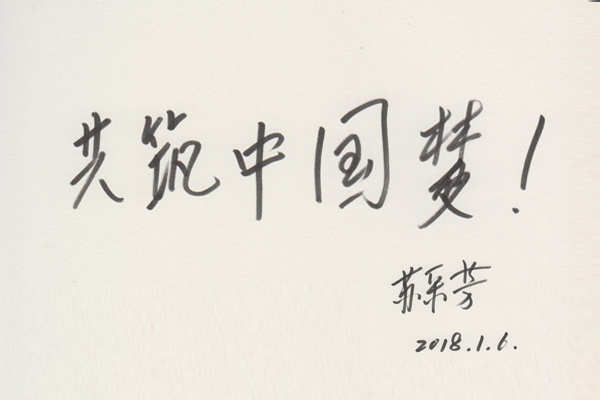 共筑中国梦！
苏采芳
2018.1.6.